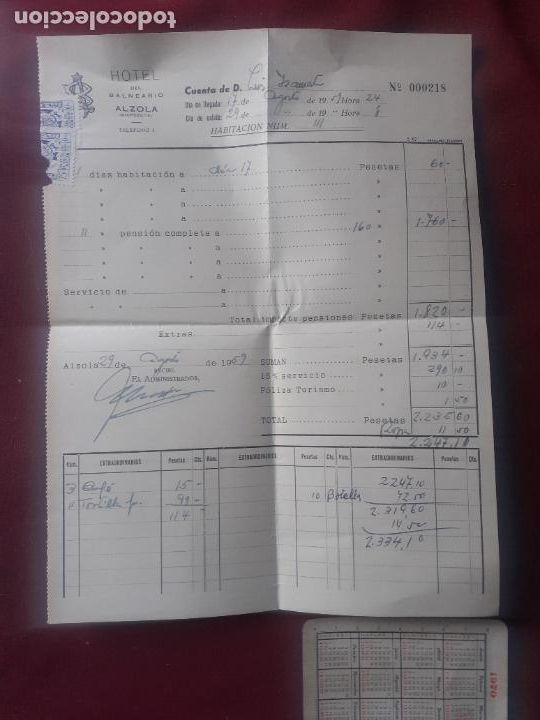 todocoleccion
HOTEL
DEL
BALNEARIO
ALZOLA
(GUIPUZCOA)
TELÉFONO 1
Cuenta de D.
Nº 000218
Día de llegada 17 de Agosto de 19 Hora 24
Día de salida 29 de " de 19 " Hora 8
HABITACION NUM. 111
días habitación a Día 17 Pesetas 60-
" " " a "
" " " a "
11 " pensión completa a 160 " 1.760 -
" " " a "
" " " a "
Servicio de a "
a "
Total importe pensiones Pesetas 1.820 -
Extras " 114 -
Alzola 29 de Agosto de 1959
SUMAN Pesetas 1.934 -
RECIBÍ
EL ADMINISTRADOR,
15% servicio " 290 10
Póliza Turismo " 10 -
" 1 50
TOTAL Pesetas 2.235 60
Ropa 11 50
2.247,10
Núm. EXTRAORDINARIOS Pesetas Cts. Núm. EXTRAORDINARIOS Pesetas Cts. Núm. EXTRAORDINARIOS Pesetas Cts.
3 Café 15 -
99 -
114 -
10 Botellas
2247,10
72 50
2.319,60
14 50
2.334,10
1970
todocoleccion.net